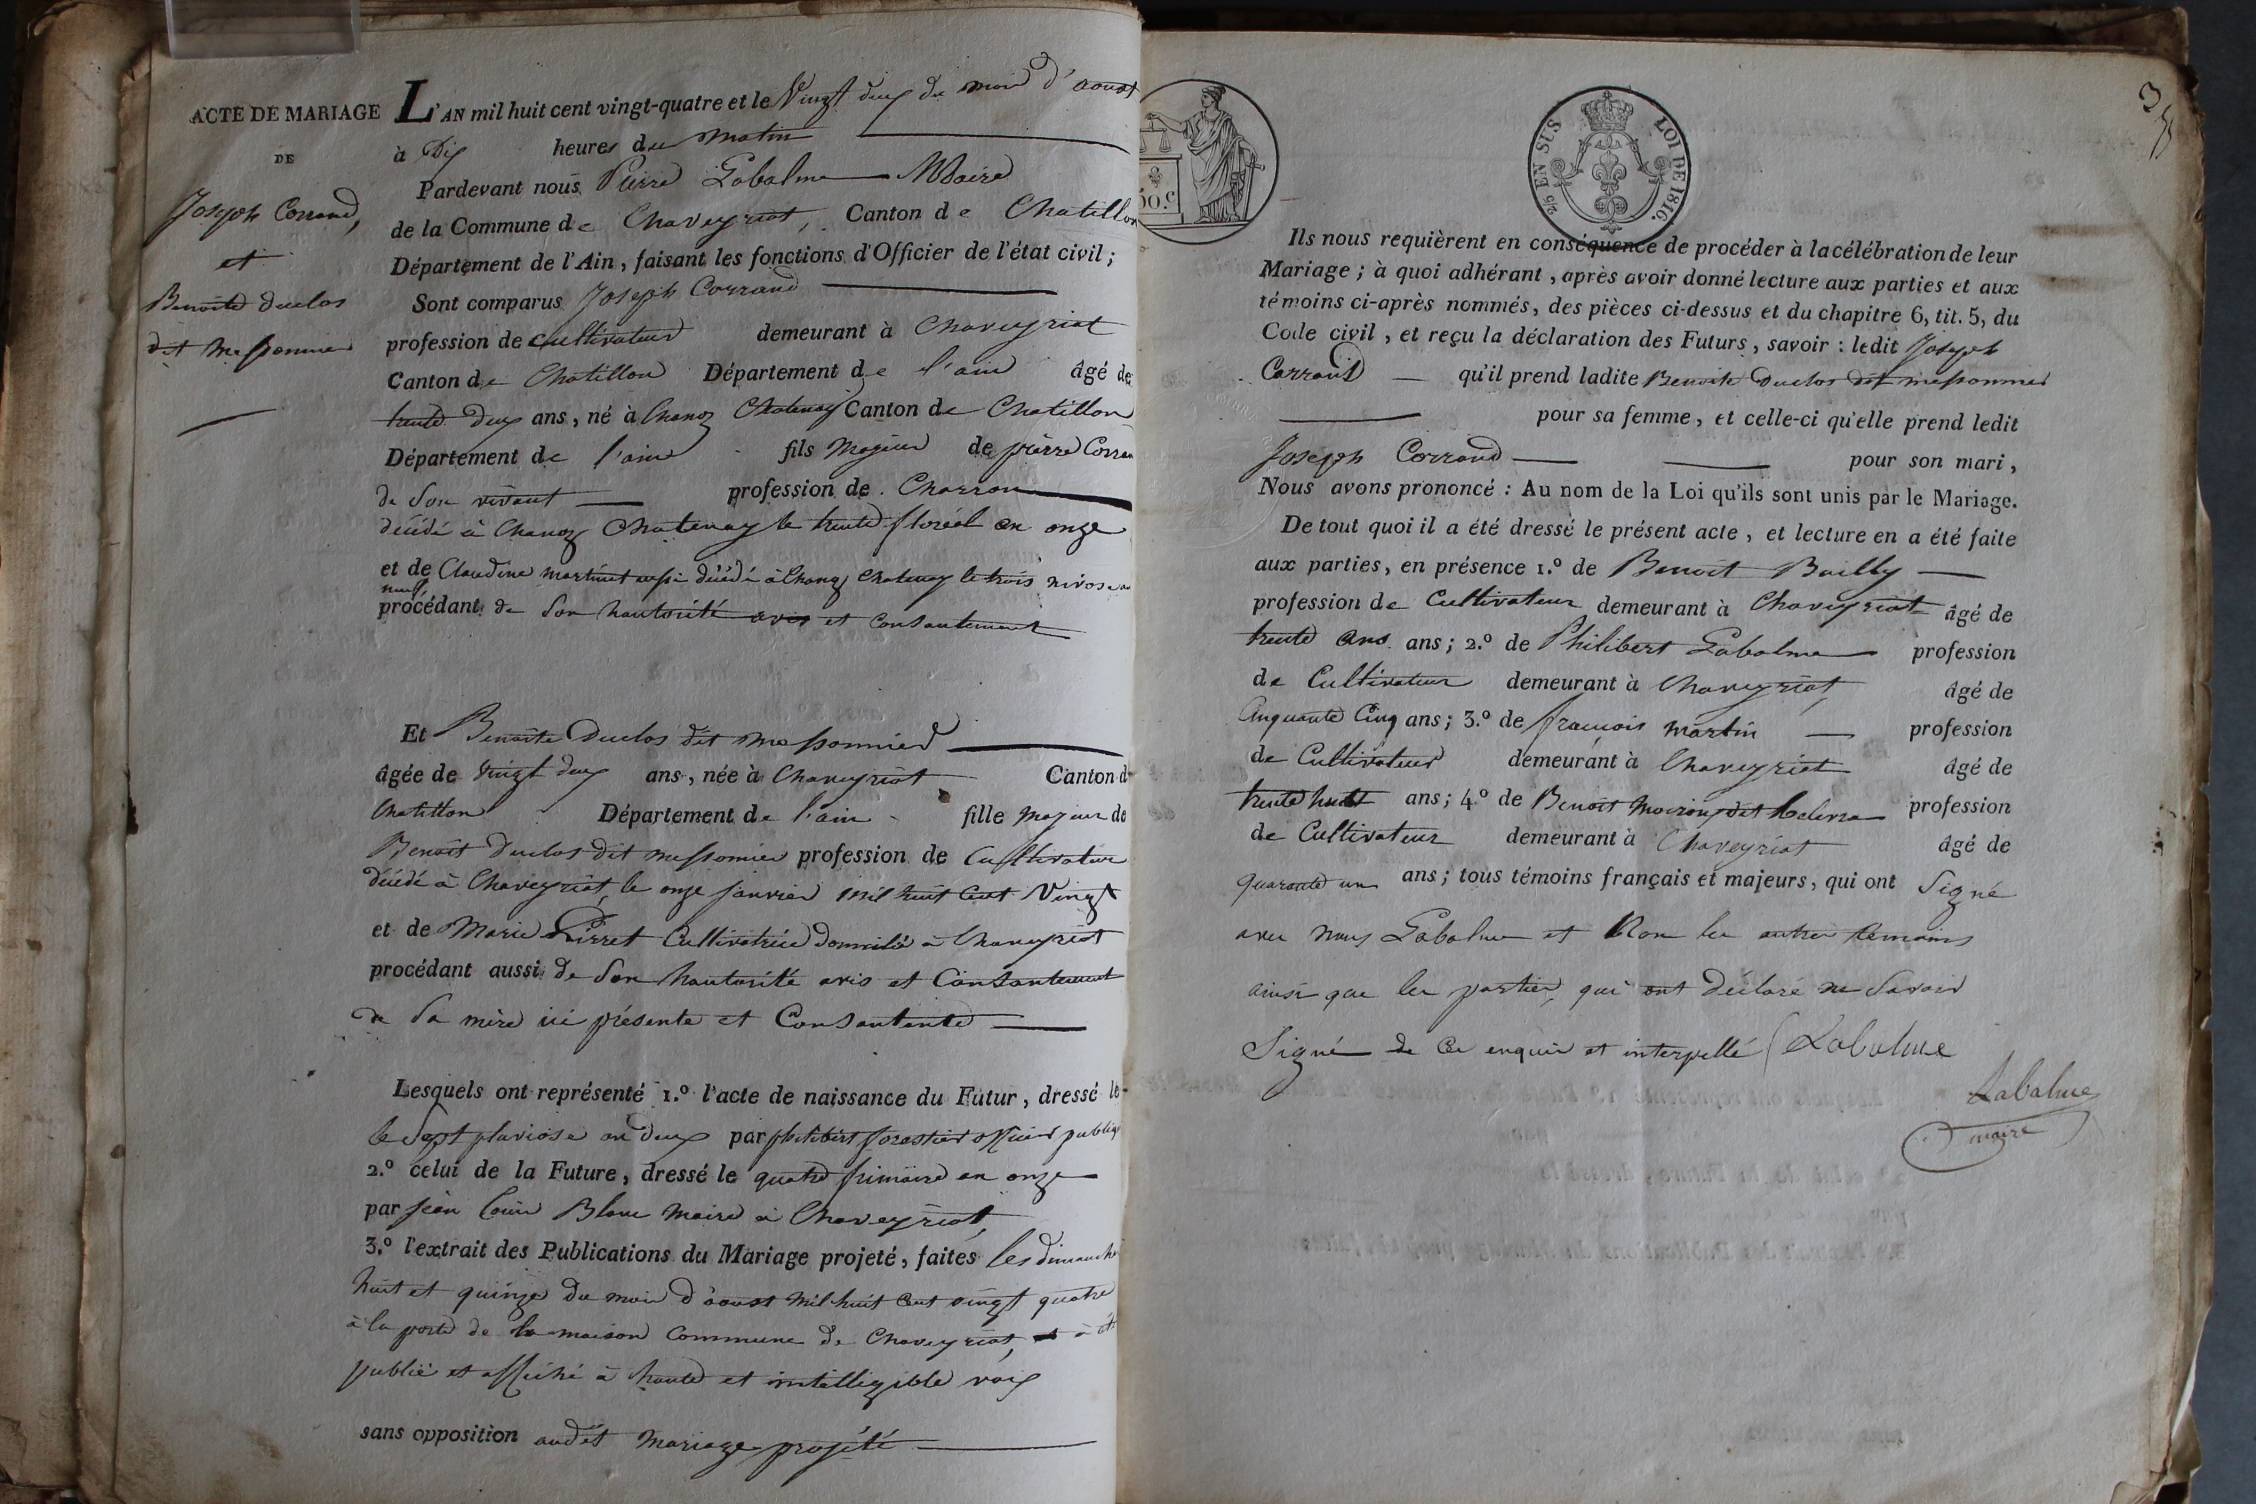 ACTE DE MARIAGE
DE
Joseph Corrand,
et
Benoîte Duclos
dit Messonnier
L'AN mil huit cent vingt-quatre et le Vingt deux du mois d'aoust
à Dix heures du matin
Pardevant nous Pierre Labalme Maire
de la Commune de Chaveyriat, Canton de Chatillon
Département de l'Ain, faisant les fonctions d'Officier de l'état civil;
Sont comparus Joseph Corrand
profession de cultivateur demeurant à Chaveyriat
Canton de Chatillon Département de l'ain âgé de
trente deux ans, né à Chanoz Chatenay Canton de Chatillon
Département de l'ain fils Majeur de pierre Corran
de Son vivant profession de Charron
décédé à Chanoz Chatenay le trente floréal an onze
et de Claudine martinet aussi décédé à Chanoz Chatenay le trois nivose an
neuf,
procédant de Son hautorité avis et consantement
Et Benoîte Duclos dit messonnier
âgée de vingt deux ans, née à Chaveyriat Canton d
Chatillon Département de l'ain fille majeur de
Benoît Duclos dit messonnier profession de Cultivateur
décédé à Chaveyriat, le onze janvier mil huit cent Vingt
et de Marie Pirret Cultivatrice Domicilié à Chaveyriat
procédant aussi de Son hautorité avis et Consantement
de Sa mère ici présente et Consantente
Lesquels ont représenté 1.º l'acte de naissance du Futur, dressé le
le Sept pluviose an deux par philibert forestier officier publiq
2.º celui de la Future, dressé le quatre frimaire an onze
par jean Louis Blanc Maire à Chaveyriat,
3.º l'extrait des Publications du Mariage projeté, faites les dimanche
huit et quinze du mois d'aoust mil huit cent vingt quatre
à la porte de la maison Commune de Chaveyriat, à été
publié et affiché à haute et intelligible voix
sans opposition audit Mariage projété
50.C
2/5 EN SUS LOI DE 1816.
Ils nous requièrent en conséquence de procéder à la célébration de leur
Mariage; à quoi adhérant, après avoir donné lecture aux parties et aux
témoins ci-après nommés, des pièces ci-dessus et du chapitre 6, tit. 5, du
Code civil, et reçu la déclaration des Futurs, savoir: ledit Joseph
Corrand qu'il prend ladite Benoite Duclos dit messonnier
pour sa femme, et celle-ci qu'elle prend ledit
Joseph Corrand pour son mari,
Nous avons prononcé: Au nom de la Loi qu'ils sont unis par le Mariage.
De tout quoi il a été dressé le présent acte, et lecture en a été faite
aux parties, en présence 1.º de Benoit Bailly
profession de Cultivateur demeurant à Chaveyriat âgé de
trente ans ans; 2.º de Philibert Labalme profession
de Cultivateur demeurant à Chaveyriat, âgé de
Cinquante Cinq ans; 3.º de françois martin profession
de Cultivateur demeurant à Chaveyriat âgé de
trente huit ans; 4.º de Benoît Moiroux dit profession
de Cultivateur demeurant à Chaveyriat âgé de
quarante un ans; tous témoins français et majeurs, qui ont Signé
avec nous Labalme et Non les autres témoins
ainsi que les parties, qui ont déclaré ne Savoir
Signé de Ce enquis et interpellé Labalme
Labalme
maire